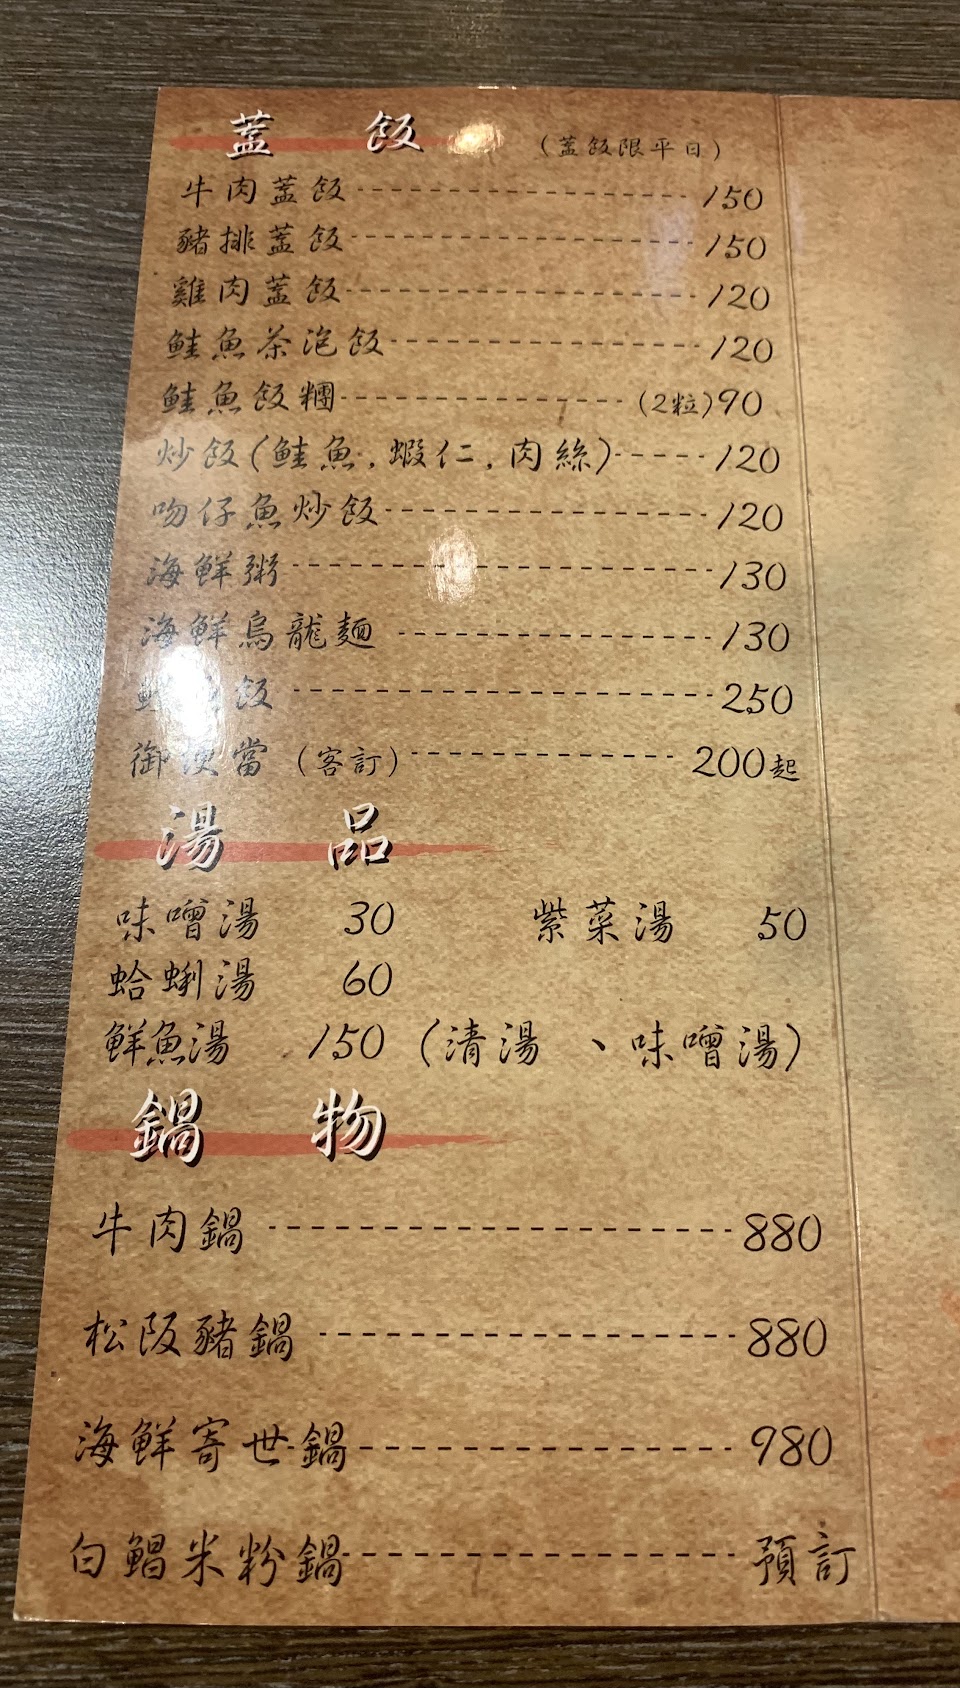 蓋飯 (蓋飯限平日)
牛肉蓋飯 150
豬排蓋飯 150
雞肉蓋飯 120
鮭魚茶泡飯 120
鮭魚飯糰 (2粒)90
炒飯(鮭魚.蝦仁.肉絲) 120
吻仔魚炒飯 120
海鮮粥 130
海鮮烏龍麵 130
飯 250
御便當 (客訂) 200起
湯品
味噌湯 30 紫菜湯 50
蛤蜊湯 60
鮮魚湯 150 (清湯、味噌湯)
鍋物
牛肉鍋 880
松阪豬鍋 880
海鮮寄世鍋 980
白鯧米粉鍋 預訂